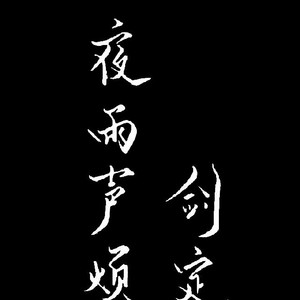 夜雨声烦
剑定